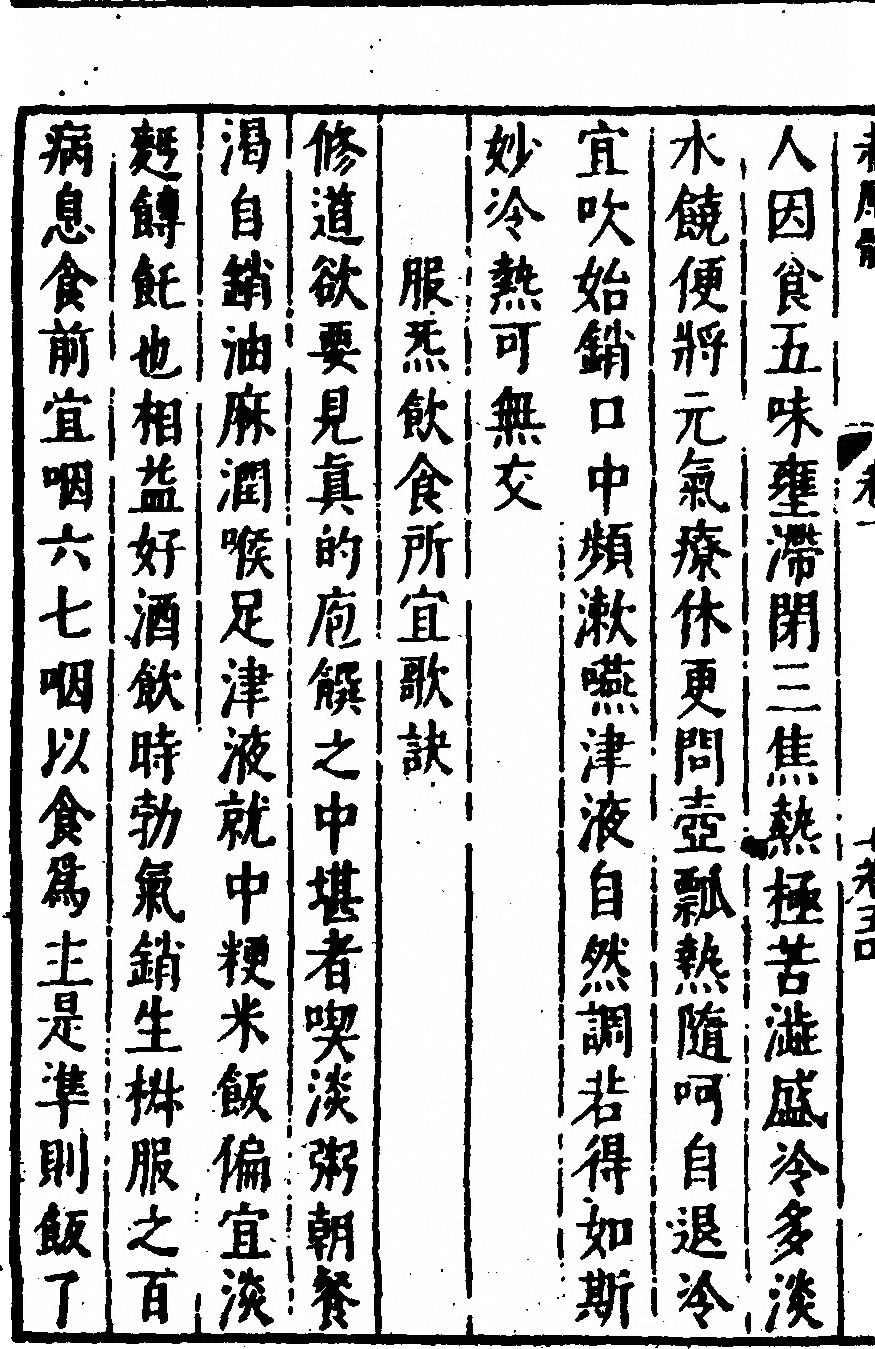 人因食五味壅滯閉三焦熱極苦澁盛冷多淡
水饒便將元氣療休更問壺瓢熱隨呵自退冷
宜吹始銷口中頻漱嚥津液自然調若得如斯
妙冷熱可無交
服炁飲食所宜歌訣
修道欲要見眞的庖饌之中堪者喫淡粥朝餐
渴自銷油麻潤喉足津液就中粳米飯偏宜淡
麪餺飥也相益好酒飲時勃氣銷生椒服之百
病息食前宜咽六七咽以食爲主是準則飯了